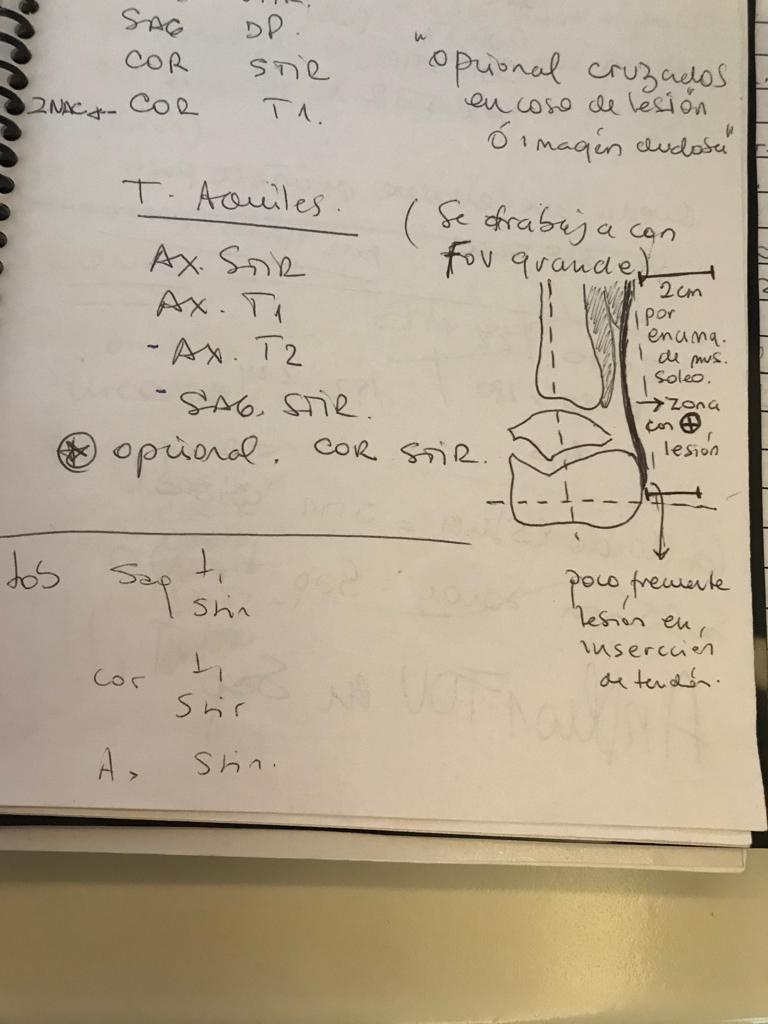 SAG DP.
COR STIR
COR T1.
"opcional cruzados
en caso de lesión
ó imagén dudosa"
T. Aquiles.
(Se trabaja con
FOV grande)
AX. STIR
AX. T1
- AX. T2
- SAG. STIR.
opcional. COR STIR.
2cm
por
encima.
de mus.
soleo.
→ zona
con ⊕
lesión
poco frecuente
lesión en
inserccion
de tendón.
Sag t1
Stir
cor t1
Stir
Ax Stir.